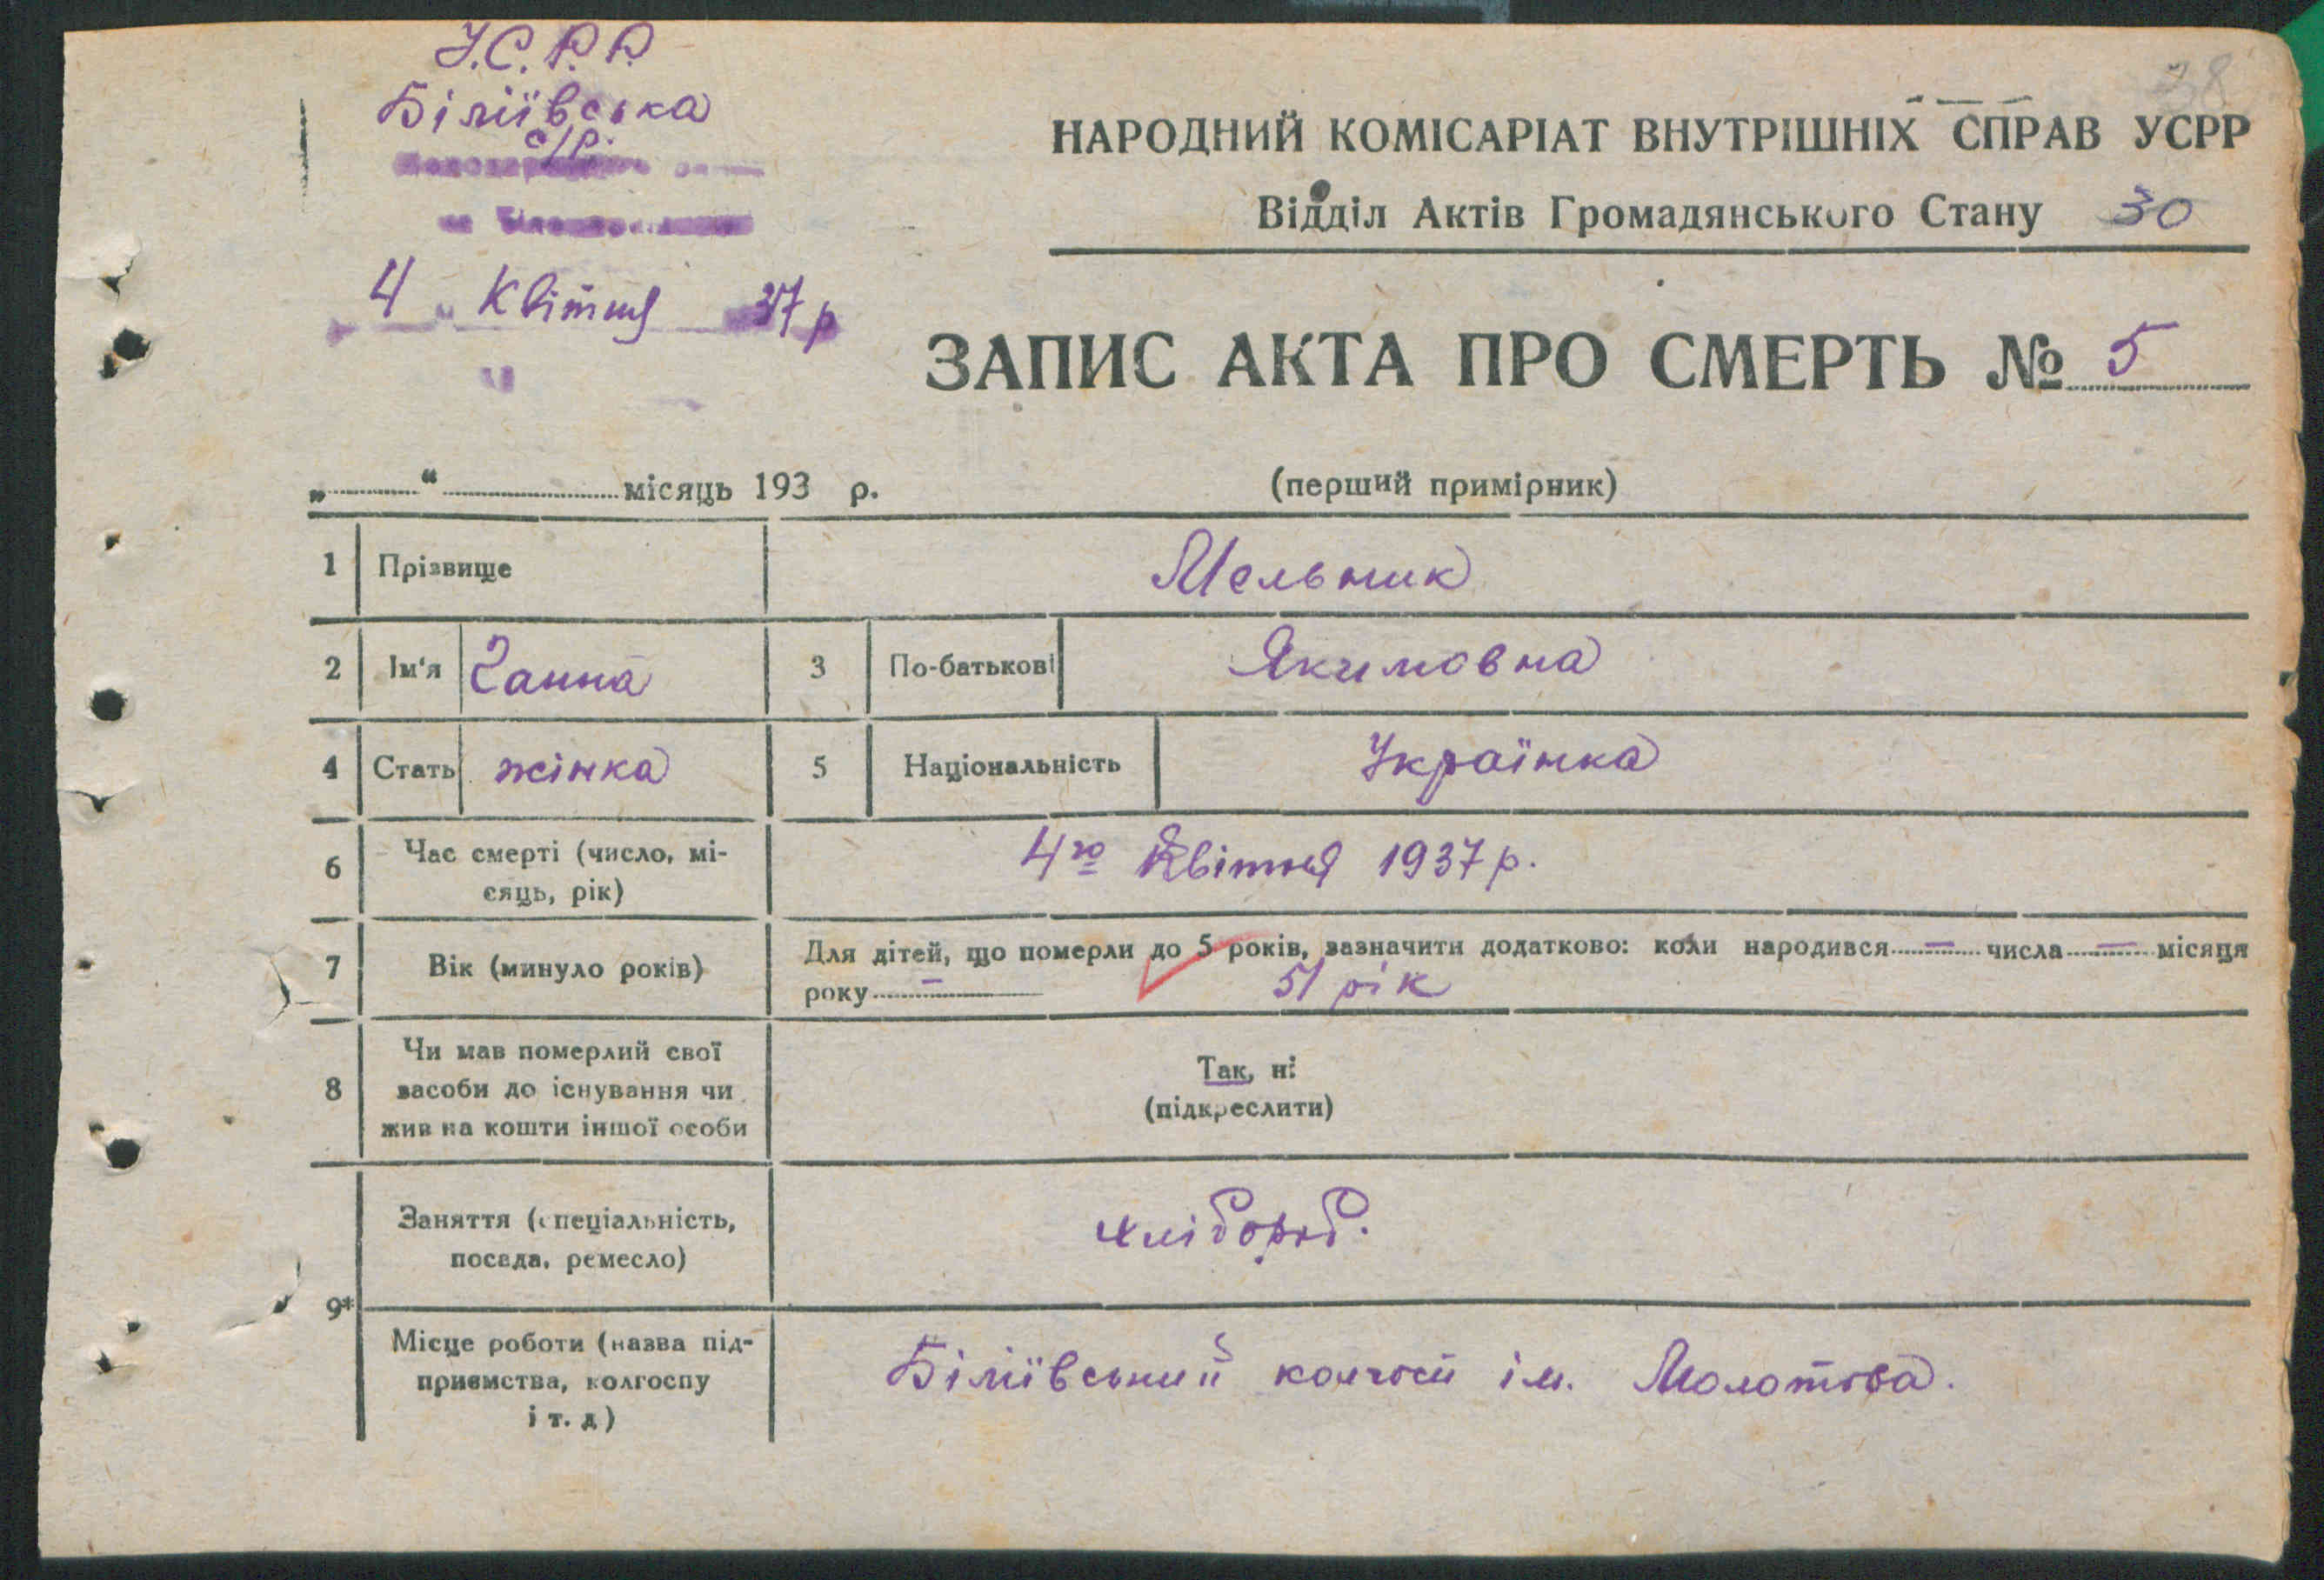 У.С.Р.Р.
Біліївська
с/р.
4 Квітня 37 р
38
НАРОДНИЙ КОМІСАРІАТ ВНУТРІШНІХ СПРАВ УСРР
Відділ Актів Громадянського Стану 30
ЗАПИС АКТА ПРО СМЕРТЬ № 5
„ “ місяць 193 р.
(перший примірник)
1 Прізвище Мельник
2 Ім'я Ганна 3 По-батькові Якимовна
4 Стать жінка 5 Національність Українка
6 Час смерті (число, мі-
сяць, рік)
4го Квітня 1937 р.
7 Вік (минуло років)
Для дітей, що померли до 5 років, зазначити додатково: коли народився — числа — місяця
року —
51 рік
8 Чи мав померлий свої
засоби до існування чи
жив на кошти іншої особи
Так, ні
(підкреслити)
9*
Заняття (спеціальність,
посада, ремесло)
хлібороб.
Місце роботи (назва під-
приємства, колгоспу
і т. д)
Біліївський колгосп ім. Молотова.